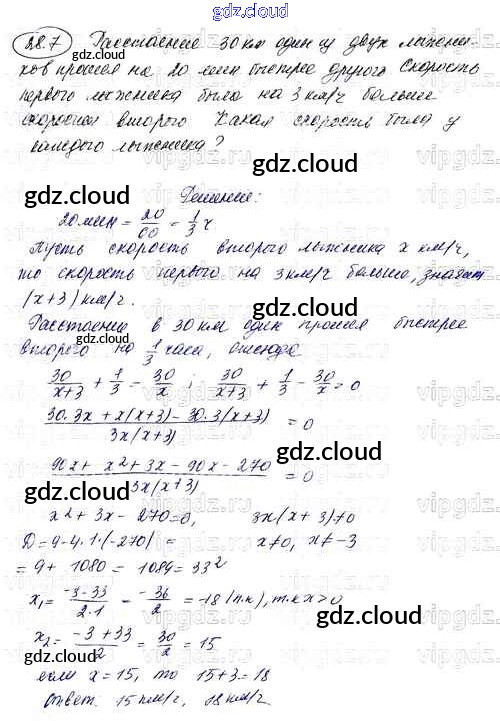 gdz.cloud
28.7 Расстояние 30 км один из двух лыжни-
ков прошел на 20 мин быстрее другого Скорость
первого лыжника была на 3 км/ч больше
скорости второго Какая скорость была у
каждого лыжника?
gdz.cloud gdz.cloud
Решение:
20 мин = 20/60 = 1/3 ч
Пусть скорость второго лыжника x км/ч,
то скорость первого на 3 км/ч больше, значит
(x+3) км/ч.
gdz.cloud gdz.cloud
Расстояние в 30 км один прошел быстрее
второго на 1/3 часа, отсюда
30/(x+3) + 1/3 = 30/x ; 30/(x+3) + 1/3 - 30/x = 0
(30·3x + x(x+3) - 30·3(x+3))/(3x(x+3)) = 0
gdz.cloud gdz.cloud
(90x + x² + 3x - 90x - 270)/(3x(x+3)) = 0
x² + 3x - 270 = 0, 3x(x+3) ≠ 0
Д = 9 - 4·1·(-270) = x ≠ 0, x ≠ -3
gdz.cloud gdz.cloud
= 9 + 1080 = 1089 = 33²
x₁ = (-3-33)/(2·1) = -36/2 = -18 (п.к), т.к x > 0
gdz.cloud gdz.cloud
x₂ = (-3+33)/2 = 30/2 = 15
если x = 15, то 15+3 = 18
Ответ: 15 км/ч, 18 км/ч.
gdz.cloud gdz.cloud